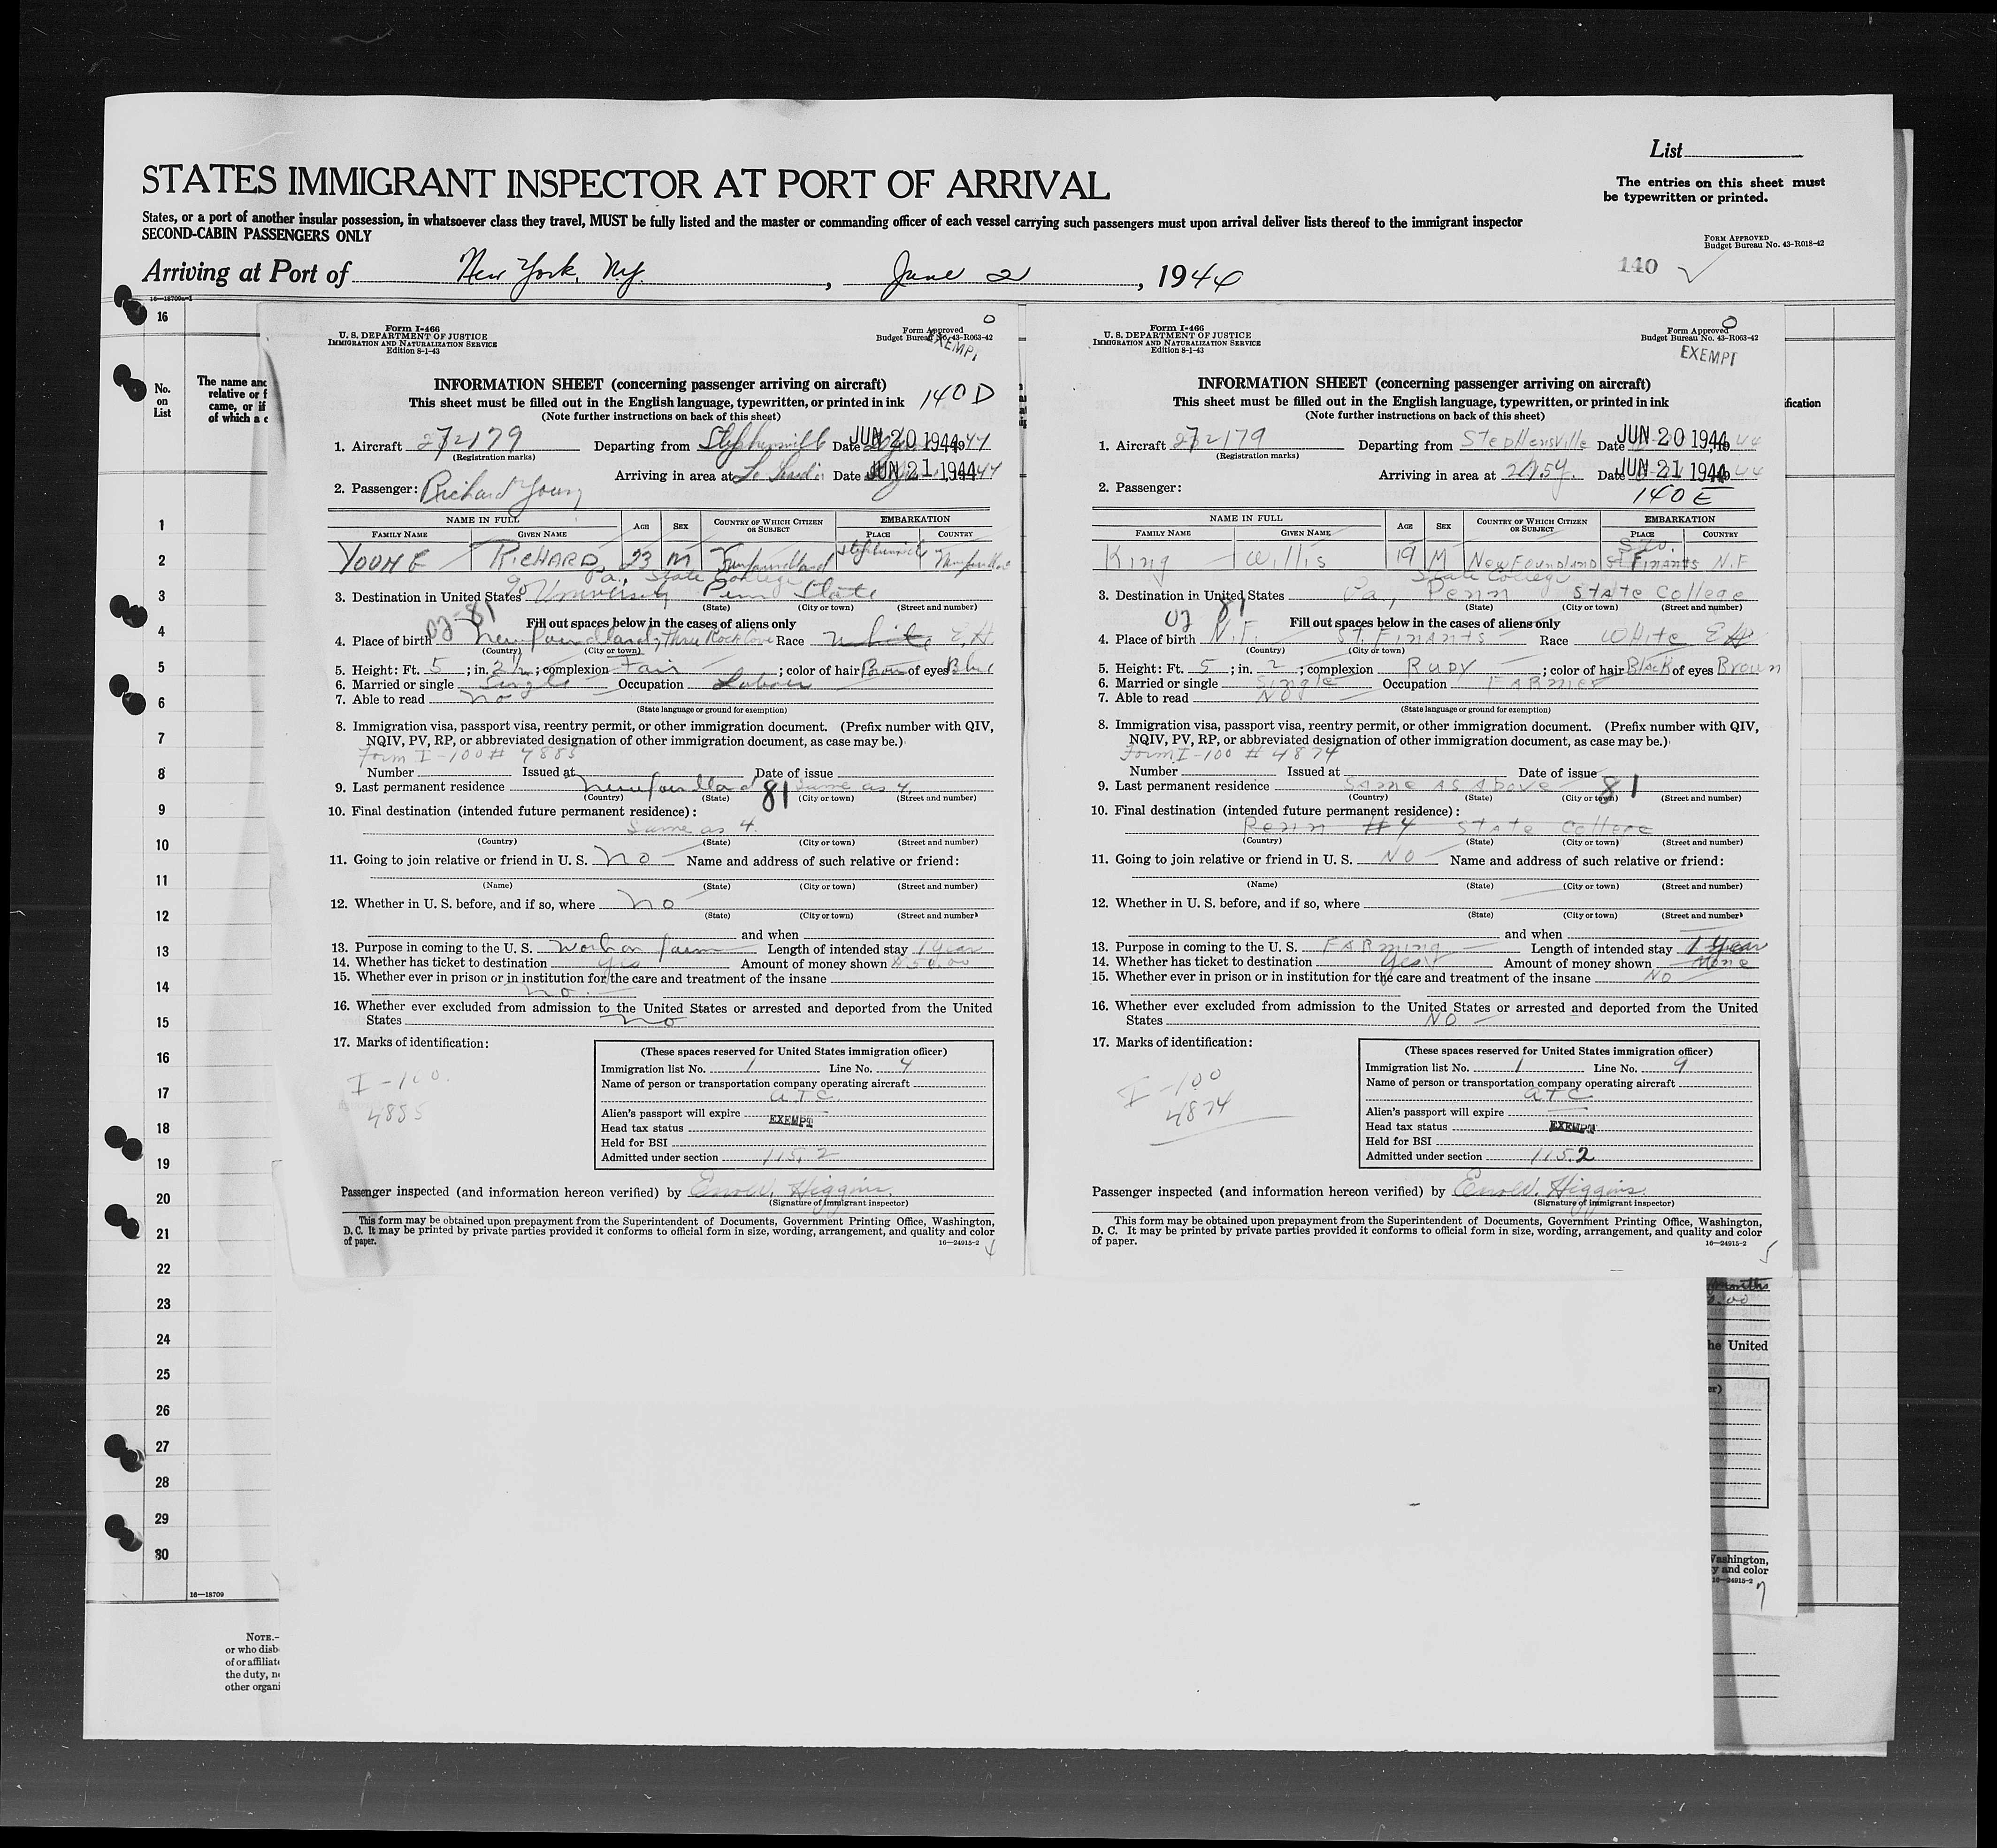 List
STATES IMMIGRANT INSPECTOR AT PORT OF ARRIVAL
The entries on this sheet must
be typewritten or printed.
States, or a port of another insular possession, in whatsoever class they travel, MUST be fully listed and the master or commanding officer of each vessel carrying such passengers must upon arrival deliver lists thereof to the immigrant inspector
SECOND-CABIN PASSENGERS ONLY
Form Approved
Budget Bureau No. 43-R018-42
Arriving at Port of New York, N.Y. , June 2 , 1944
140
16—18709a-1
16
No.
on
List
The name and
relative or f
came, or if
of which a c
1
2
3
4
5
6
7
8
9
10
11
12
13
14
15
16
17
18
19
20
21
22
23
24
25
26
27
28
29
30
16—18709
Note.—
or who disb
of or affiliate
the duty, n
other organi
Form I-466
U. S. DEPARTMENT OF JUSTICE
Immigration and Naturalization Service
Edition 8-1-43
Form Approved
Budget Bureau No. 43-R063-42
EXEMPT
INFORMATION SHEET (concerning passenger arriving on aircraft)
140 D
This sheet must be filled out in the English language, typewritten, or printed in ink
(Note further instructions on back of this sheet)
1. Aircraft 272179 Departing from Stephenville Date JUN 20 1944
(Registration marks)
Arriving in area at Date JUN 21 1944
2. Passenger: Richard Young
NAME IN FULL Age Sex Country of Which Citizen or Subject EMBARKATION
Family Name Given Name Place Country
RICHARD 23 M Newfoundland Stephenville
Pa., State College
3. Destination in United States University Penn State
(State) (City or town) (Street and number)
02-81
Fill out spaces below in the cases of aliens only
4. Place of birth Newfoundland, Three Rock Cove Race white
(Country) (City or town)
5. Height: Ft. 5 ; in. 2 1/2 ; complexion Fair ; color of hair Brown of eyes Blue
6. Married or single Single Occupation Labour
7. Able to read no
(State language or ground for exemption)
8. Immigration visa, passport visa, reentry permit, or other immigration document. (Prefix number with QIV,
NQIV, PV, RP, or abbreviated designation of other immigration document, as case may be.)
Form I-100 # 4885
Number Issued at Date of issue
9. Last permanent residence Newfoundland 81 Same as 4.
(Country) (State) (City or town) (Street and number)
10. Final destination (intended future permanent residence):
Same as 4.
(Country) (State) (City or town) (Street and number)
11. Going to join relative or friend in U. S. no Name and address of such relative or friend:
(Name) (State) (City or town) (Street and number)
12. Whether in U. S. before, and if so, where no
(State) (City or town) (Street and number)
and when
13. Purpose in coming to the U. S. work on farm Length of intended stay 1 year
14. Whether has ticket to destination yes Amount of money shown $50.00
15. Whether ever in prison or in institution for the care and treatment of the insane
no
16. Whether ever excluded from admission to the United States or arrested and deported from the United
States no
17. Marks of identification:
I-100
4885
(These spaces reserved for United States immigration officer)
Immigration list No. 1 Line No. 4
Name of person or transportation company operating aircraft
ATC
Alien's passport will expire
Head tax status EXEMPT
Held for BSI
Admitted under section 115.2
Passenger inspected (and information hereon verified) by Higgins
(Signature of immigrant inspector)
This form may be obtained upon prepayment from the Superintendent of Documents, Government Printing Office, Washington,
D. C. It may be printed by private parties provided it conforms to official form in size, wording, arrangement, and quality and color
of paper.
16—24915-2
4
Form I-466
U. S. DEPARTMENT OF JUSTICE
Immigration and Naturalization Service
Edition 8-1-43
Form Approved
Budget Bureau No. 43-R063-42
EXEMPT
INFORMATION SHEET (concerning passenger arriving on aircraft)
This sheet must be filled out in the English language, typewritten, or printed in ink
(Note further instructions on back of this sheet)
1. Aircraft 272179 Departing from StepHensville Date JUN 20 1944
(Registration marks)
Arriving in area at Date JUN 21 1944
2. Passenger:
140 E
NAME IN FULL Age Sex Country of Which Citizen or Subject EMBARKATION
Family Name Given Name Place Country
King Willis 19 M NewFoundland St Finants N.F
State College
3. Destination in United States Pa., Penn STATE College
(State) (City or town) (Street and number)
02 81
Fill out spaces below in the cases of aliens only
4. Place of birth N.F. ST. Finants Race WHite
(Country) (City or town)
5. Height: Ft. 5 ; in. 2 ; complexion Rudy ; color of hair Black of eyes Brown
6. Married or single Single Occupation FARmer
7. Able to read NO
(State language or ground for exemption)
8. Immigration visa, passport visa, reentry permit, or other immigration document. (Prefix number with QIV,
NQIV, PV, RP, or abbreviated designation of other immigration document, as case may be.)
Form I-100 # 4874
Number Issued at Date of issue
9. Last permanent residence Same AS Above 81
(Country) (State) (City or town) (Street and number)
10. Final destination (intended future permanent residence):
Penn #4 STATE College
(Country) (State) (City or town) (Street and number)
11. Going to join relative or friend in U. S. NO Name and address of such relative or friend:
(Name) (State) (City or town) (Street and number)
12. Whether in U. S. before, and if so, where
(State) (City or town) (Street and number)
and when
13. Purpose in coming to the U. S. FARming Length of intended stay 1 Year
14. Whether has ticket to destination Yes Amount of money shown None
15. Whether ever in prison or in institution for the care and treatment of the insane NO
16. Whether ever excluded from admission to the United States or arrested and deported from the United
States NO
17. Marks of identification:
I-100
4874
(These spaces reserved for United States immigration officer)
Immigration list No. 1 Line No. 9
Name of person or transportation company operating aircraft
ATC
Alien's passport will expire
Head tax status EXEMPT
Held for BSI
Admitted under section 115.2
Passenger inspected (and information hereon verified) by Higgins
(Signature of immigrant inspector)
This form may be obtained upon prepayment from the Superintendent of Documents, Government Printing Office, Washington,
D. C. It may be printed by private parties provided it conforms to official form in size, wording, arrangement, and quality and color
of paper.
16—24915-2
5
fication
months
he United
er)
Washington,
y and color
16—24915-2
7